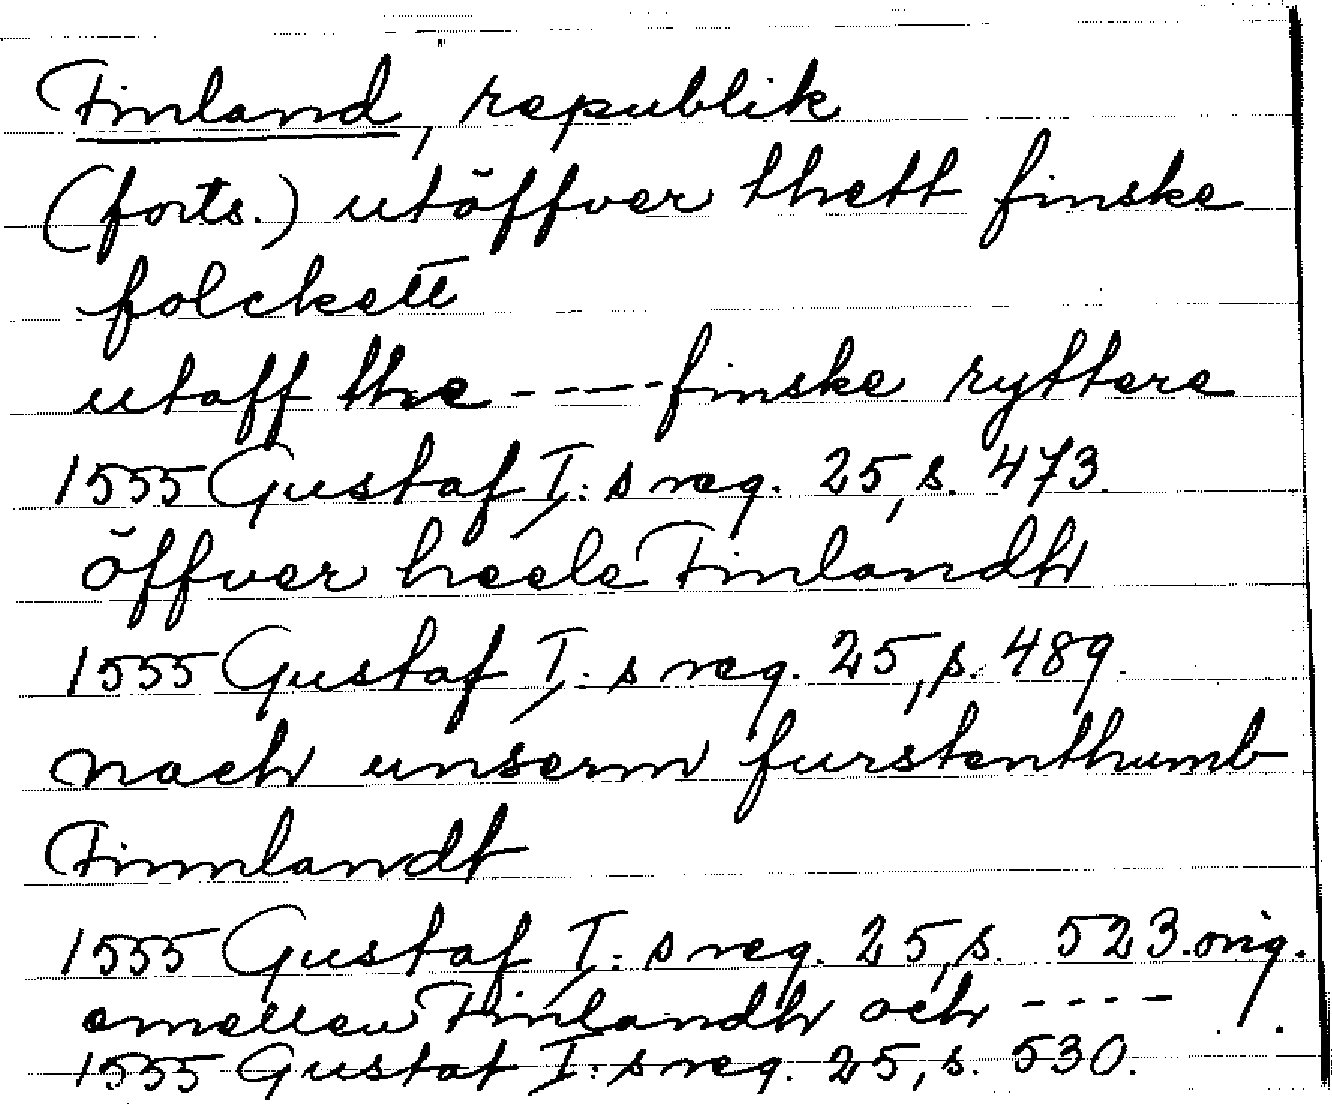 Finland, republik
(forts.) utöffver thett finske
folckett
utaff the ---- finske ryttere
1555 Gustaf I:s reg. 25, s. 473.
öffver heele Finlandh
1555 Gustaf I:s reg. 25, s. 489.
nach unserm furstenthumb
Finnlandt
1555 Gustaf I:s reg. 25, s. 523. orig.
emellen Finlandh och ----
1555 Gustaf I:s reg. 25, s. 530.